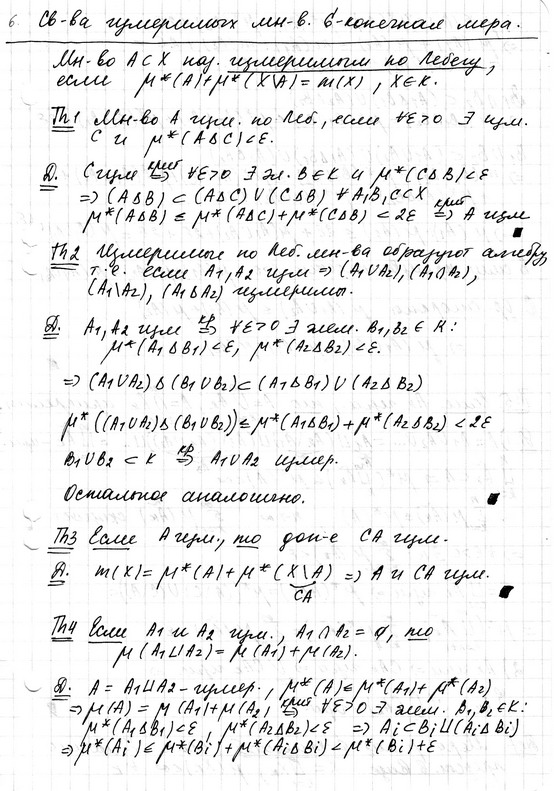 6. Св-ва измеримых мн-в. б-конечная мера.
Мн-во A⊂X наз. измеримым по Лебегу,
если μ*(A)+μ*(X\A)=m(X), X∈K.
Th1 Мн-во A изм. по Леб., если ∀ε>0 ∃ изм.
C и μ*(A∆C)<ε.
Д. C изм ⇒ крит ∀ε>0 ∃ эл. B∈K и μ*(C∆B)<ε
⇒ (A∆B) ⊂ (A∆C)∪(C∆B) ∀A,B,C⊂X
μ*(A∆B) ≤ μ*(A∆C)+μ*(C∆B) < 2ε ⇒ крит A изм
Th2 Измеримые по Леб. мн-ва образуют алгебру,
т.е. если A1,A2 изм ⇒ (A1∪A2), (A1∩A2),
(A1\A2), (A1∆A2) измеримы.
Д. A1,A2 изм ⇒ кр ∀ε>0 ∃ элем. B1,B2∈K:
μ*(A1∆B1)<ε, μ*(A2∆B2)<ε.
⇒ (A1∪A2)∆(B1∪B2)⊂(A1∆B1)∪(A2∆B2)
μ*((A1∪A2)∆(B1∪B2))≤μ*(A1∆B1)+μ*(A2∆B2)<2ε
B1∪B2 ⊂ K ⇒ кр A1∪A2 измер.
Остальное аналогично.
Th3 Если A изм., то доп-е CA изм.
Д. m(X)=μ*(A)+μ*(X\A) ⇒ A и CA изм.
CA
Th4 Если A1 и A2 изм., A1∩A2=∅, то
μ(A1⊔A2)=μ(A1)+μ(A2).
Д. A=A1⊔A2-измер., μ*(A)≤μ*(A1)+μ*(A2)
⇒μ(A)=μ(A1)+μ(A2) ⇒ крит ∀ε>0 ∃ элем. B1,B2∈K:
μ*(A1∆B1)<ε, μ*(A2∆B2)<ε ⇒ Ai⊂Bi⊔(Ai∆Bi)
⇒μ*(Ai)≤μ*(Bi)+μ*(Ai∆Bi)<μ*(Bi)+ε